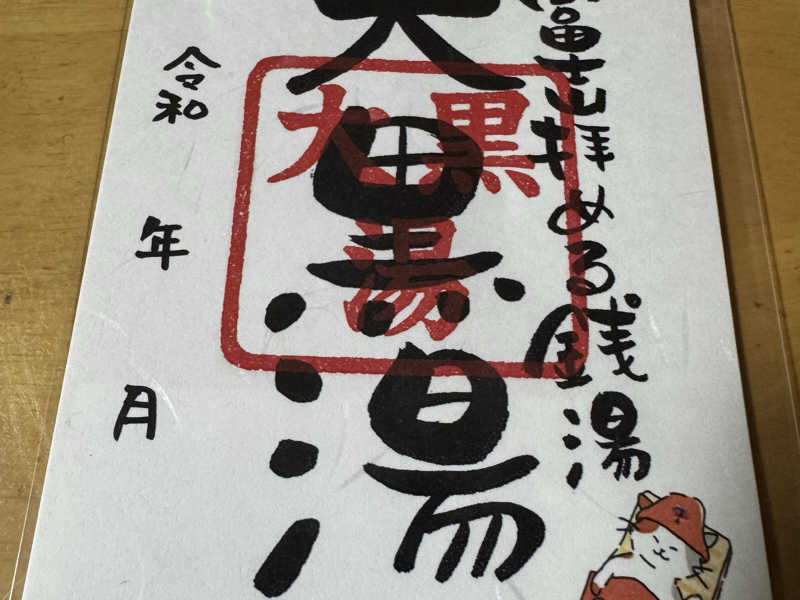 富士山拝める銭湯
大黒湯
黒大湯
令和 年 月